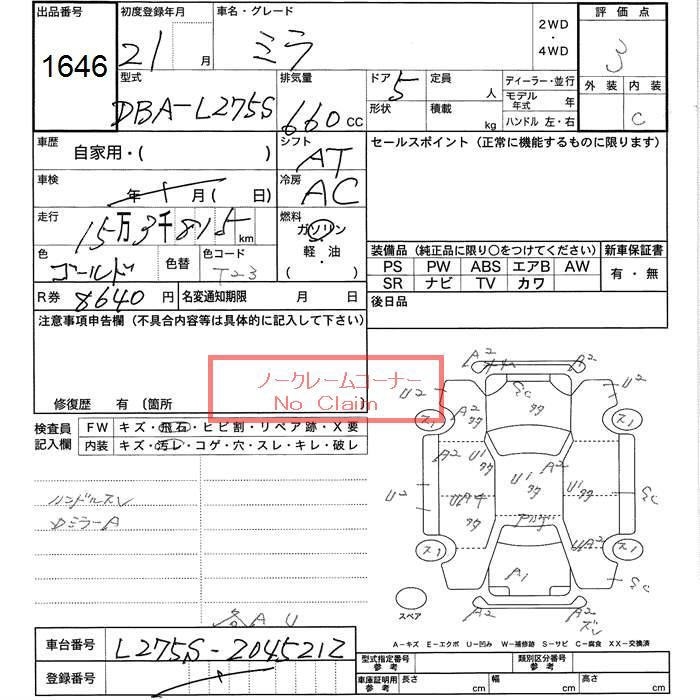 出品番号 初度登録年月 車名・グレード 2WD・4WD 評価点
1646 21 月 ミラ 3
外装 内装
C
型式 排気量 ドア 定員 ディーラー・並行
DBA-L275S 660 CC 5 人 モデル年式 年
形状 積載 kg ハンドル 左・右
車歴 自家用・( ) シフト AT セールスポイント (正常に機能するものに限ります)
車検 年 月( 日) 冷房 AC
走行 15万3千815 km 燃料 ガソリン
軽・油
・( )
色 ゴールド 色替 色コード T23
装備品 (純正品に限り〇をつけてください) 新車保証書
PS PW ABS エアB AW 有・無
SR ナビ TV カワ
R券 8640 円 名変通知期限 月 日 後日品
注意事項申告欄 (不具合内容等は具体的に記入して下さい)
ノークレームコーナー
No Claim
修復歴 有 〔箇所
検査員記入欄 FW キズ・飛石・ヒビ割・リペア跡・X要
内装 キズ・汚レ・コゲ・穴・スレ・キレ・破レ
ハンドルスレ
DミラーA
各AU
A2 A2
U2 U2
スリ スリ
A2 A2
U1 U1 U1
U2 UA4 SC
スリ UA2 スリ
A1
A2
スペア
A-キズ E-エクボ U-凹み W-補修跡 S-サビ C-腐食 XX-交換済
車台番号 L275S-2045212
登録番号
型式指定番号 参考 類別区分番号 参考
車庫証明用 参考 長さ cm 幅 cm 高さ cm